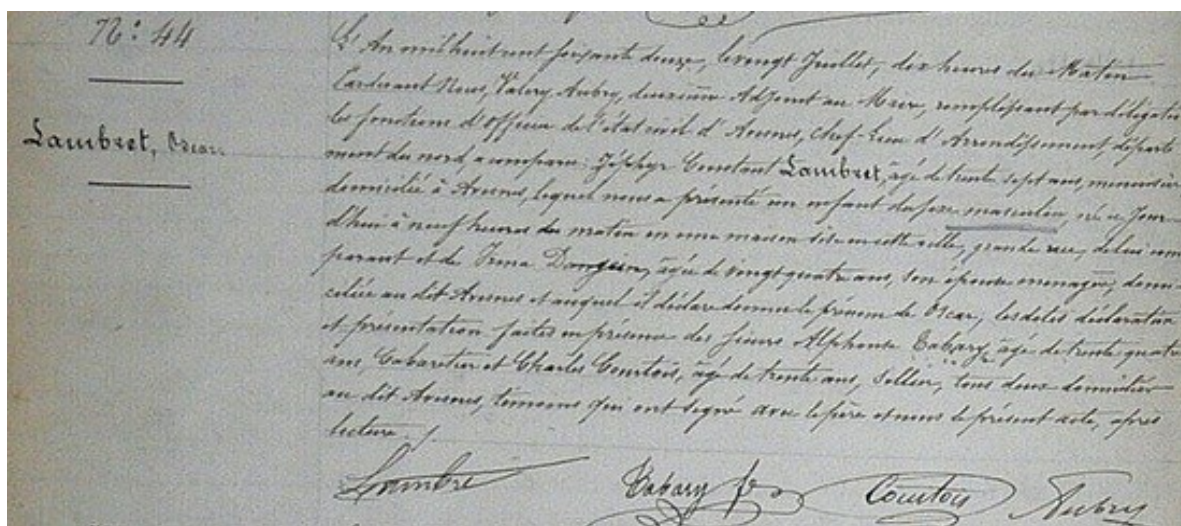 N°: 44
Lambret, Oscar
L'An mil huit cent soixante douze, le vingt Juillet, dix heures du Matin
Pardevant Nous, Valery Aubry, deuxième Adjoint au Maire, remplissant par délégation
les fonctions d'officier de l'état civil d'Avesnes, chef-lieu d'Arrondissement, départe
ment du nord, a comparu: Zéphyr Constant Lambret, âgé de trente sept ans, menuisier
domicilié à Avesnes, lequel nous a présenté un enfant du sexe masculin né ce jour
d'hui à neuf heures du matin en une maison sise en cette ville, grande rue, de lui com
parant et de Irma, âgée de vingt quatre ans, son épouse ménagère, domi-
ciliée au dit Avesnes et auquel il déclare donner le prénom de Oscar; les dites déclaration
et présentation faites en présence des sieurs Alphonse Tabary, âgé de trente quatre
ans, Cabaretier et Charles Courtois, âgé de trente ans, Sellier, tous deux domiciliés
au dit Avesnes, témoins qui ont signé avec le père et nous le présent acte, après
lecture.
Lambre Tabary Courtois Aubry